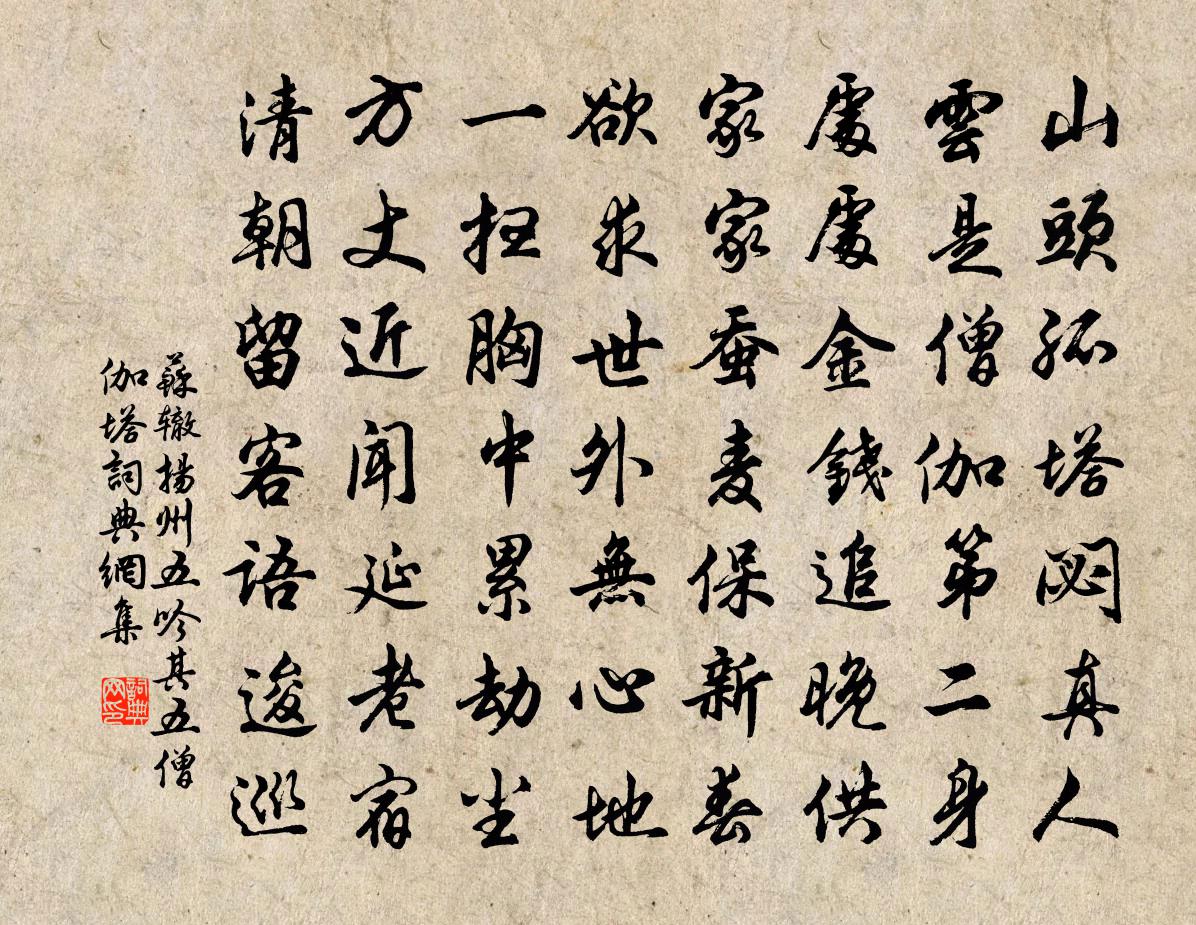 山頭孤塔閟真人
雲是僧伽第二身
處處金錢追晚供
家家蚕麦保新春
欲求世外無心地
一扫胸中累劫尘
方丈近聞延老宿
清朝留客語逡巡
蘇辙揚州五吟其五僧
伽塔詞典網集
詞典网印